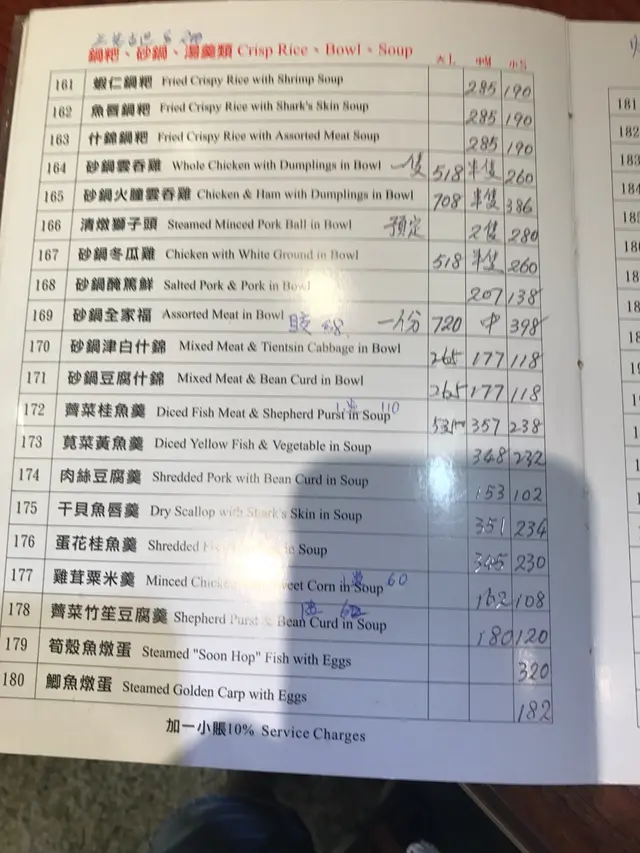 鍋粑、砂鍋、湯羹類 Crisp Rice、Bowl、Soup 大 中 小
161 蝦仁鍋粑 Fried Crispy Rice with Shrimp Soup 285 190
162 魚唇鍋粑 Fried Crispy Rice with Shark's Skin Soup 285 190
163 什錦鍋粑 Fried Crispy Rice with Assorted Meat Soup 285 190
164 砂鍋雲吞雞 Whole Chicken with Dumplings in Bowl 一隻 518 半隻 260
165 砂鍋火朣雲吞雞 Chicken & Ham with Dumplings in Bowl 708 半隻 386
166 清燉獅子頭 Steamed Minced Pork Ball in Bowl 預定 2隻 280
167 砂鍋冬瓜雞 Chicken with White Ground in Bowl 518 半隻 260
168 砂鍋醃篤鮮 Salted Pork & Pork in Bowl 207 138
169 砂鍋全家福 Assorted Meat in Bowl 一份 720 中 398
170 砂鍋津白什錦 Mixed Meat & Tientsin Cabbage in Bowl 265 177 118
171 砂鍋豆腐什錦 Mixed Meat & Bean Curd in Bowl 265 177 118
172 薺菜桂魚羹 Diced Fish Meat & Shepherd Purst in Soup 110 357 238
173 莧菜黃魚羹 Diced Yellow Fish & Vegetable in Soup 348 232
174 肉絲豆腐羹 Shredded Pork with Bean Curd in Soup 153 102
175 干貝魚唇羹 Dry Scallop with Shark's Skin in Soup 351 234
176 蛋花桂魚羹 Shredded in Soup 345 230
177 雞茸粟米羹 Minced Sweet Corn in Soup 60 162 108
178 薺菜竹笙豆腐羹 Shepherd Purst & Bean Curd in Soup 180 120
179 筍殼魚燉蛋 Steamed "Soon Hop" Fish with Eggs 320
180 鯽魚燉蛋 Steamed Golden Carp with Eggs 182
加一小賬10% Service Charges
181
182
183
184